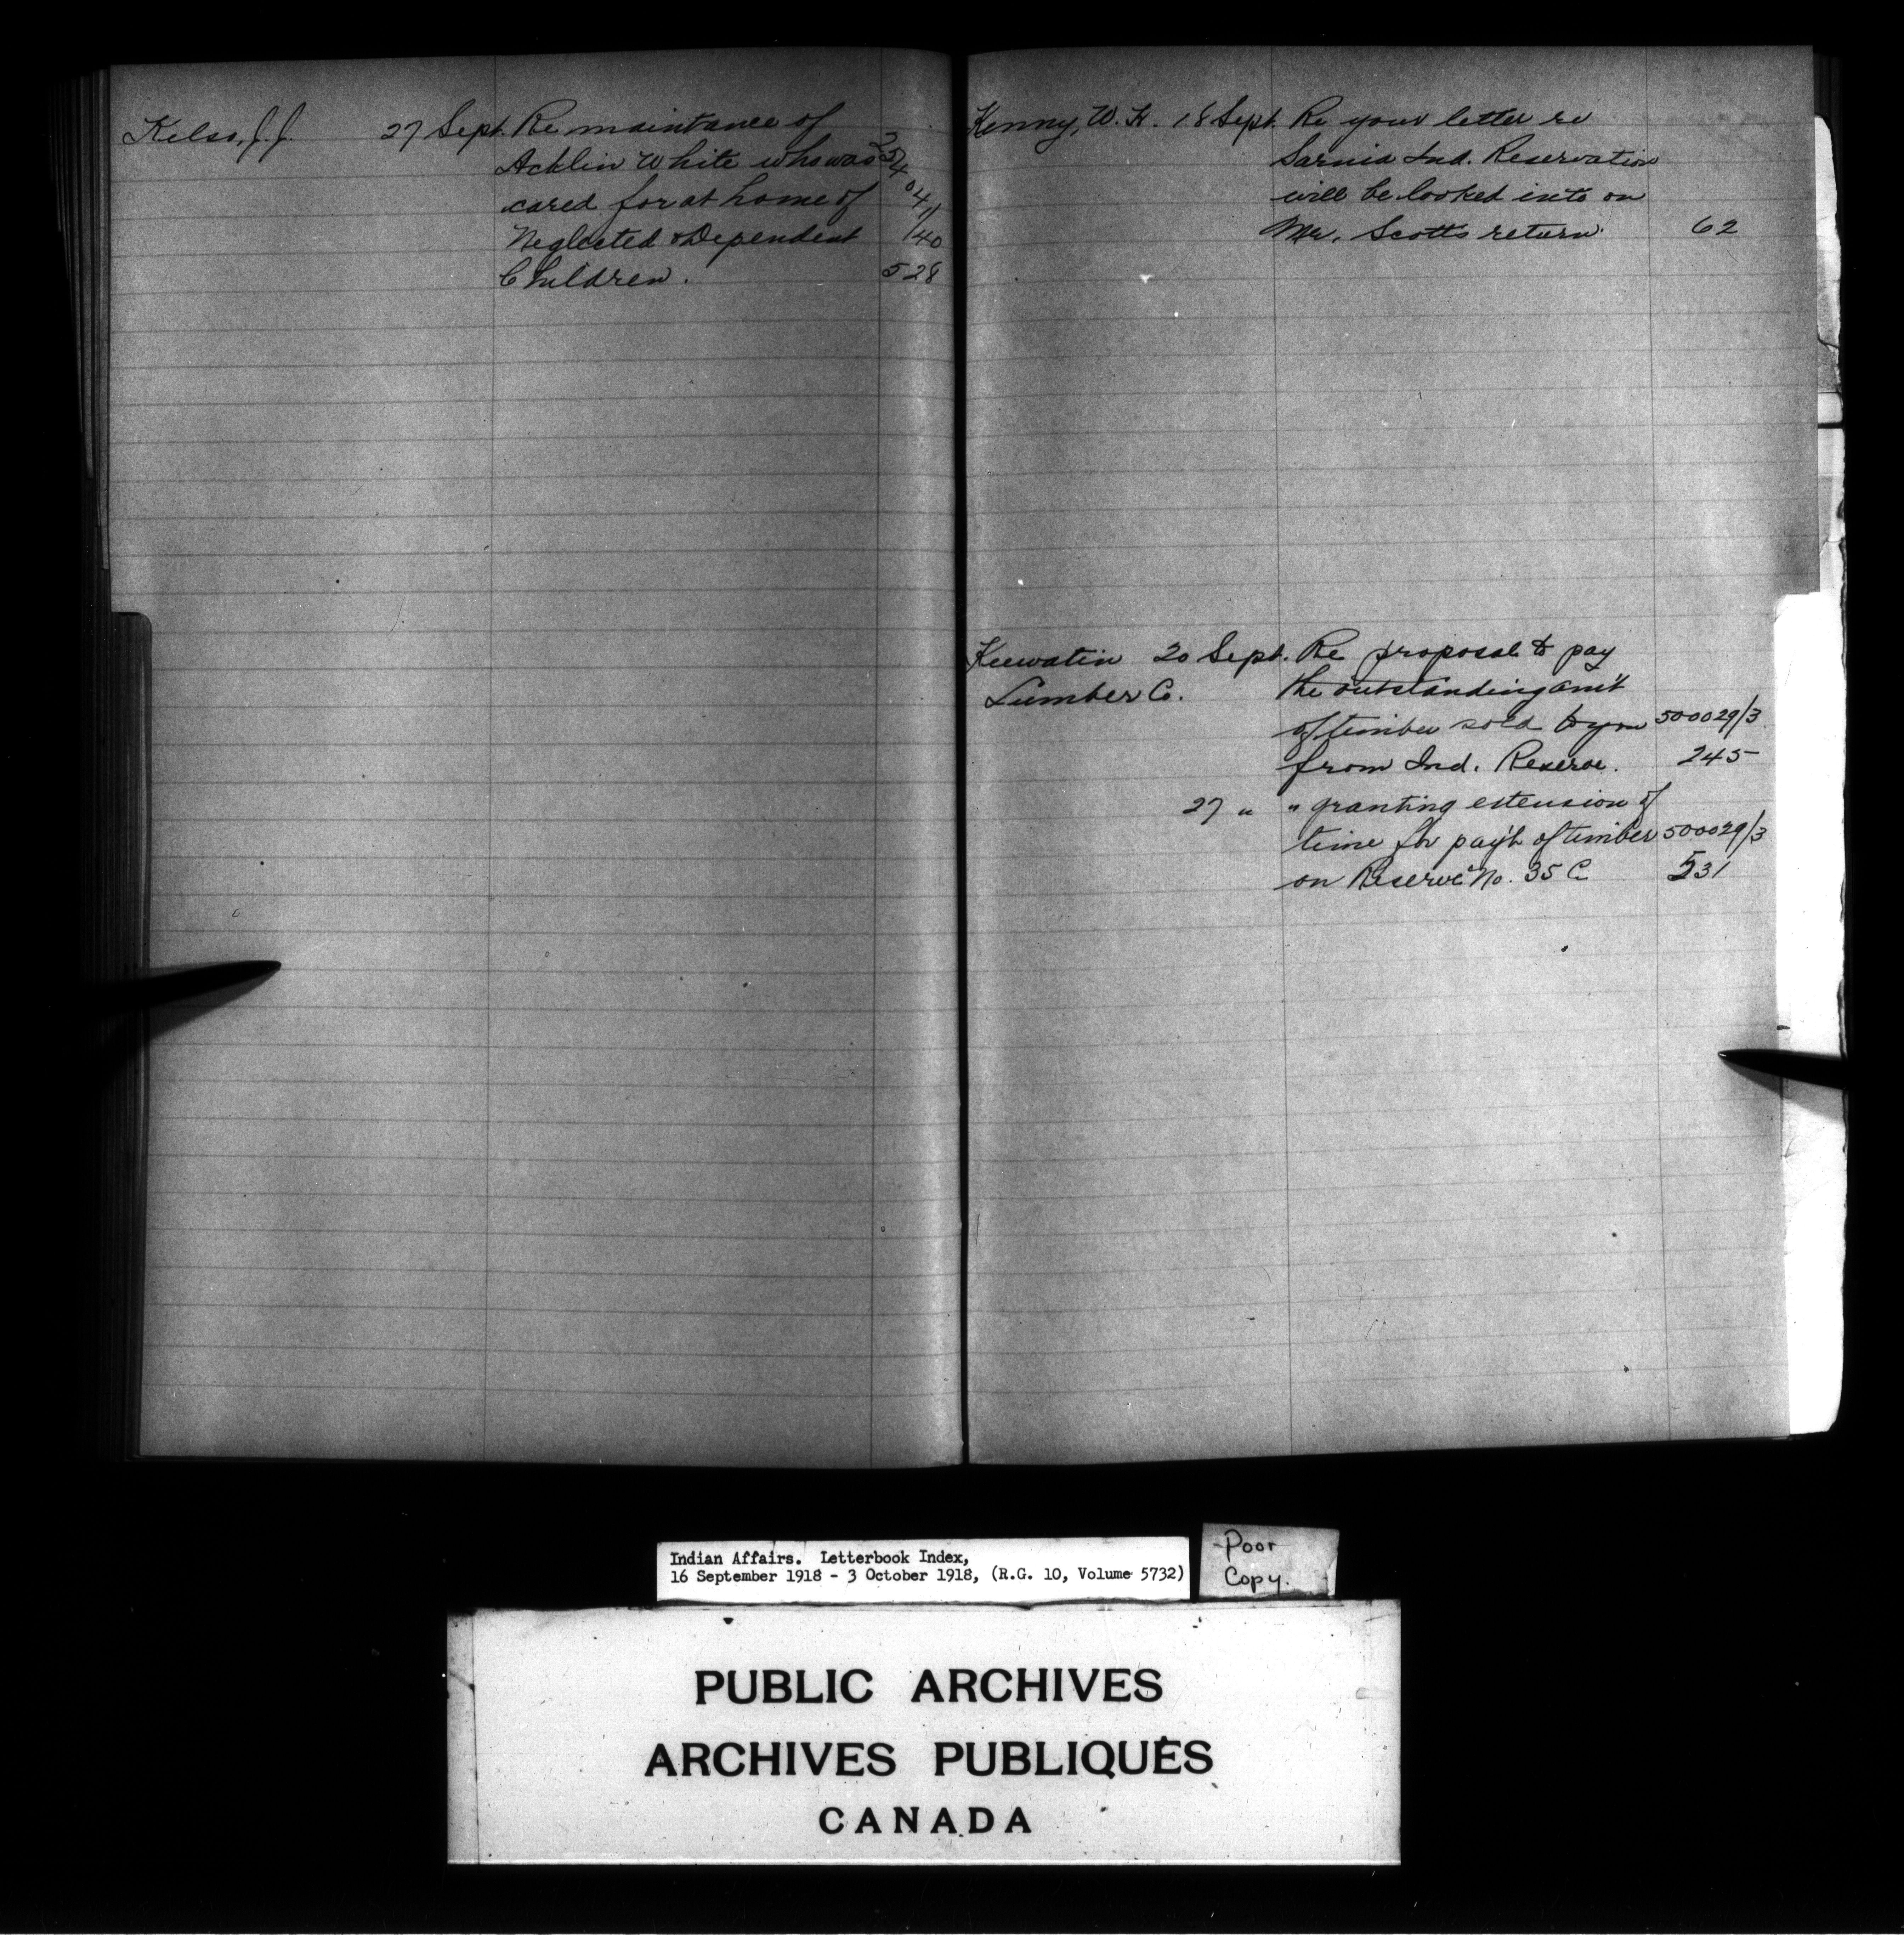 Kelso, J. J. 27 Sept. Re maintance of
Acklin White who was
cared for at home of
Neglected & Dependent 140
Children. 528
Kenny, W. H. 18 Sept. Re your letter re
Sarnia Ind. Reservation
will be looked into on
Mr. Scotts return. 62
Keewatin 20 Sept. Re proposal to pay
Lumber Co. the outstanding am't
of timber sold to you 500029/3
from Ind. Reserve. 245
27 " " granting extension of
time for pay't of timber 500029/3
on Reserve No. 35 C 531
Indian Affairs. Letterbook Index,
16 September 1918 - 3 October 1918, (R.G. 10, Volume 5732)
Poor
Copy.
PUBLIC ARCHIVES
ARCHIVES PUBLIQUES
CANADA